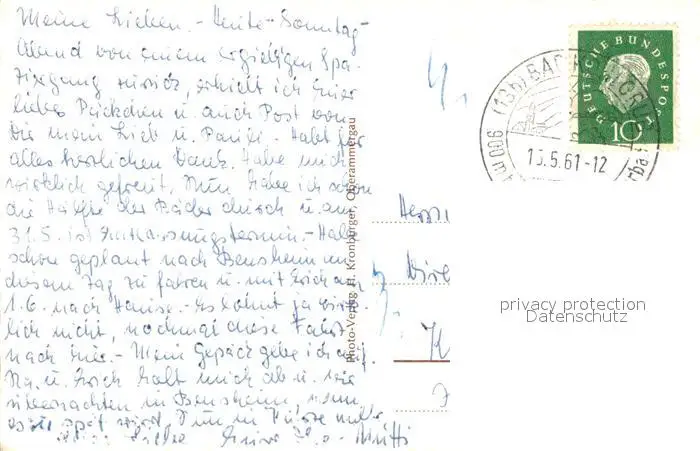 Meine Lieben. - Heute - Sonntag-
Abend von einem ergiebigen Spa-
ziergang zurück, erhielt ich Euer
liebes Päckchen u. auch Post von
Dir mein Lieb u. Habt für
alles herzlichen Dank. Habe mich
wirklich gefreut. Nun habe ich schon
die Hälfte der Bäder durch u. am
31.5. ist Entlassungstermin. - Habe
schon geplant nach Bensheim an
diesem Tag zu fahren u. mit Erich am
1.6. nach Hause. - Es lohnt ja wirk-
lich nicht, nochmal diese Fahrt
nach hier. - Mein Gepäck gebe ich auf.
Na, u. Erich holt mich ab u. wir
übernachten in Bensheim, wenn
es zu spät wird. Nun in Kürze mehr
Liebe Grüße Mutti
Photo-Verlag H. Kronburger, Oberammergau
DEUTSCHE BUNDESPOST
10
(13b) BAD
15.5.61-12
Herrn
privacy protection
Datenschutz